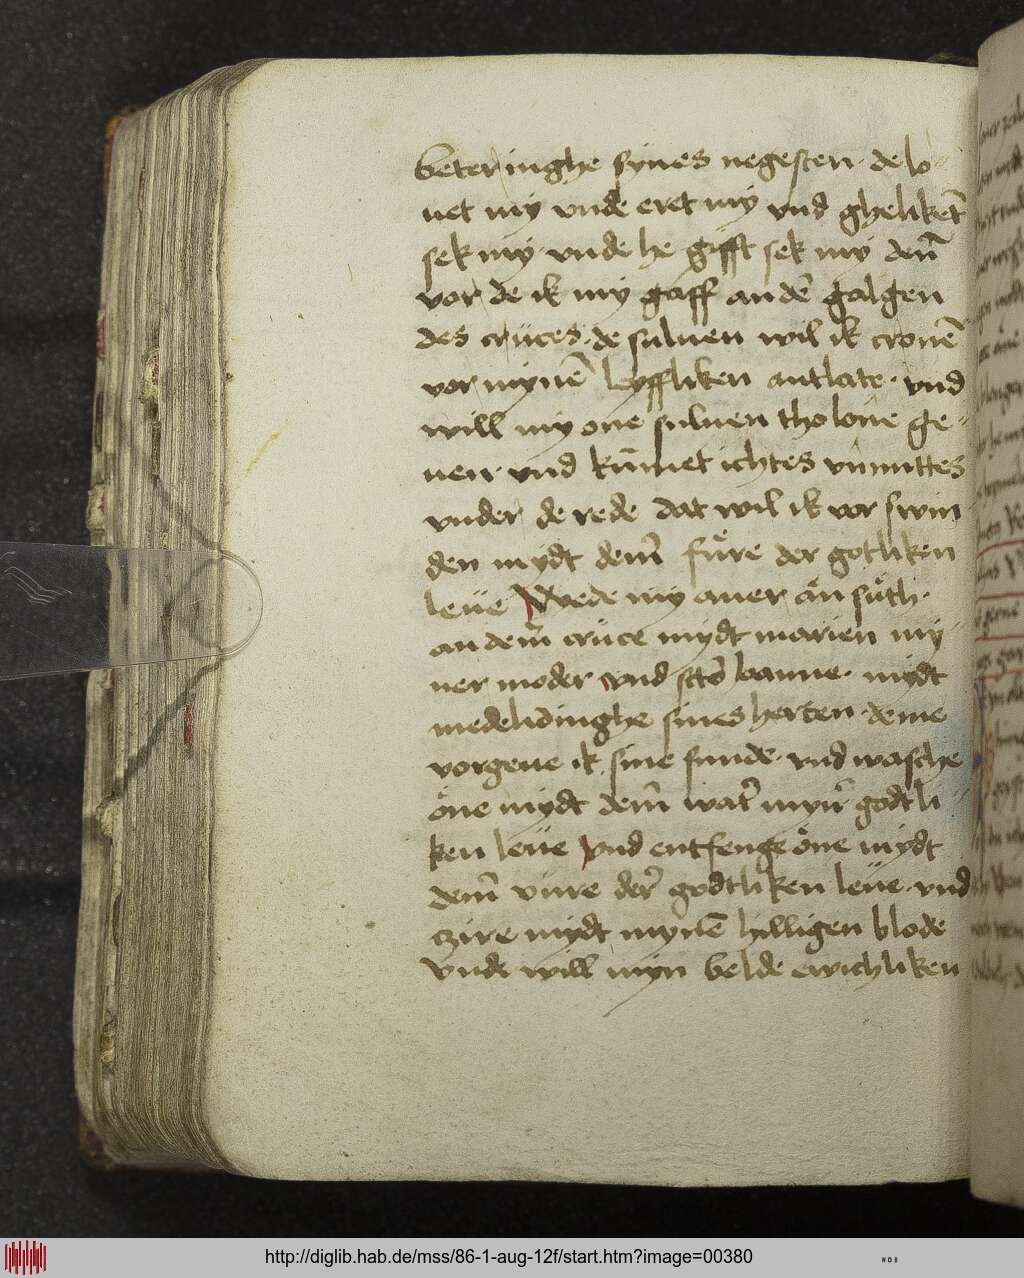 beteringhe synes negesten · de lo-
uet my vnde eret my vnd ghelikēt
sek my · vnde he gifft sek my deñ
vor de ik my gaff an dē galgen
des crüces · de suluen wil ik cronē
vor mynē leyffliken antlate · vnd
will my one suluen tho lone ge-
uen · vnd kūmet ichtes vnnuttes
vnder de rede dat wil ik vor swin
den mydt dem̄ fuͤre der gotliken
leue Wede my auer an suͤth ·
an dem̄ cruce mydt marien my
ner moder vnd sctē ioanne · mydt
medelidinghe sines herten · deme
vorgeue ik sine sunde · vnd wasche
oͤne mydt dem̄ wat̄ myn̄ godtli-
ken leue vnd entfenge oͤne mydt
dem̄ vure der̄ godtliken leue · vnd
czire mydt mynē hilligen blode
vnde will myn belde ewichliken
http://diglib.hab.de/mss/86-1-aug-12f/start.htm?image=00380